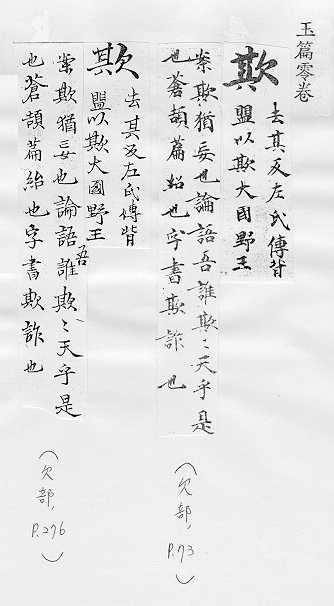 玉篇零卷
欺
去其反左氏傳背
盟以欺大國野王
案欺猶妄也論語吾誰欺〻天乎是
也蒼頡篇紿也字書欺詐也
(欠部,
P.73)
欺
去其反左氏傳背
盟以欺大國野王
案欺猶妄也論語吾誰欺〻天乎是
也蒼頡篇紿也字書欺詐也
(欠部,
P.276)